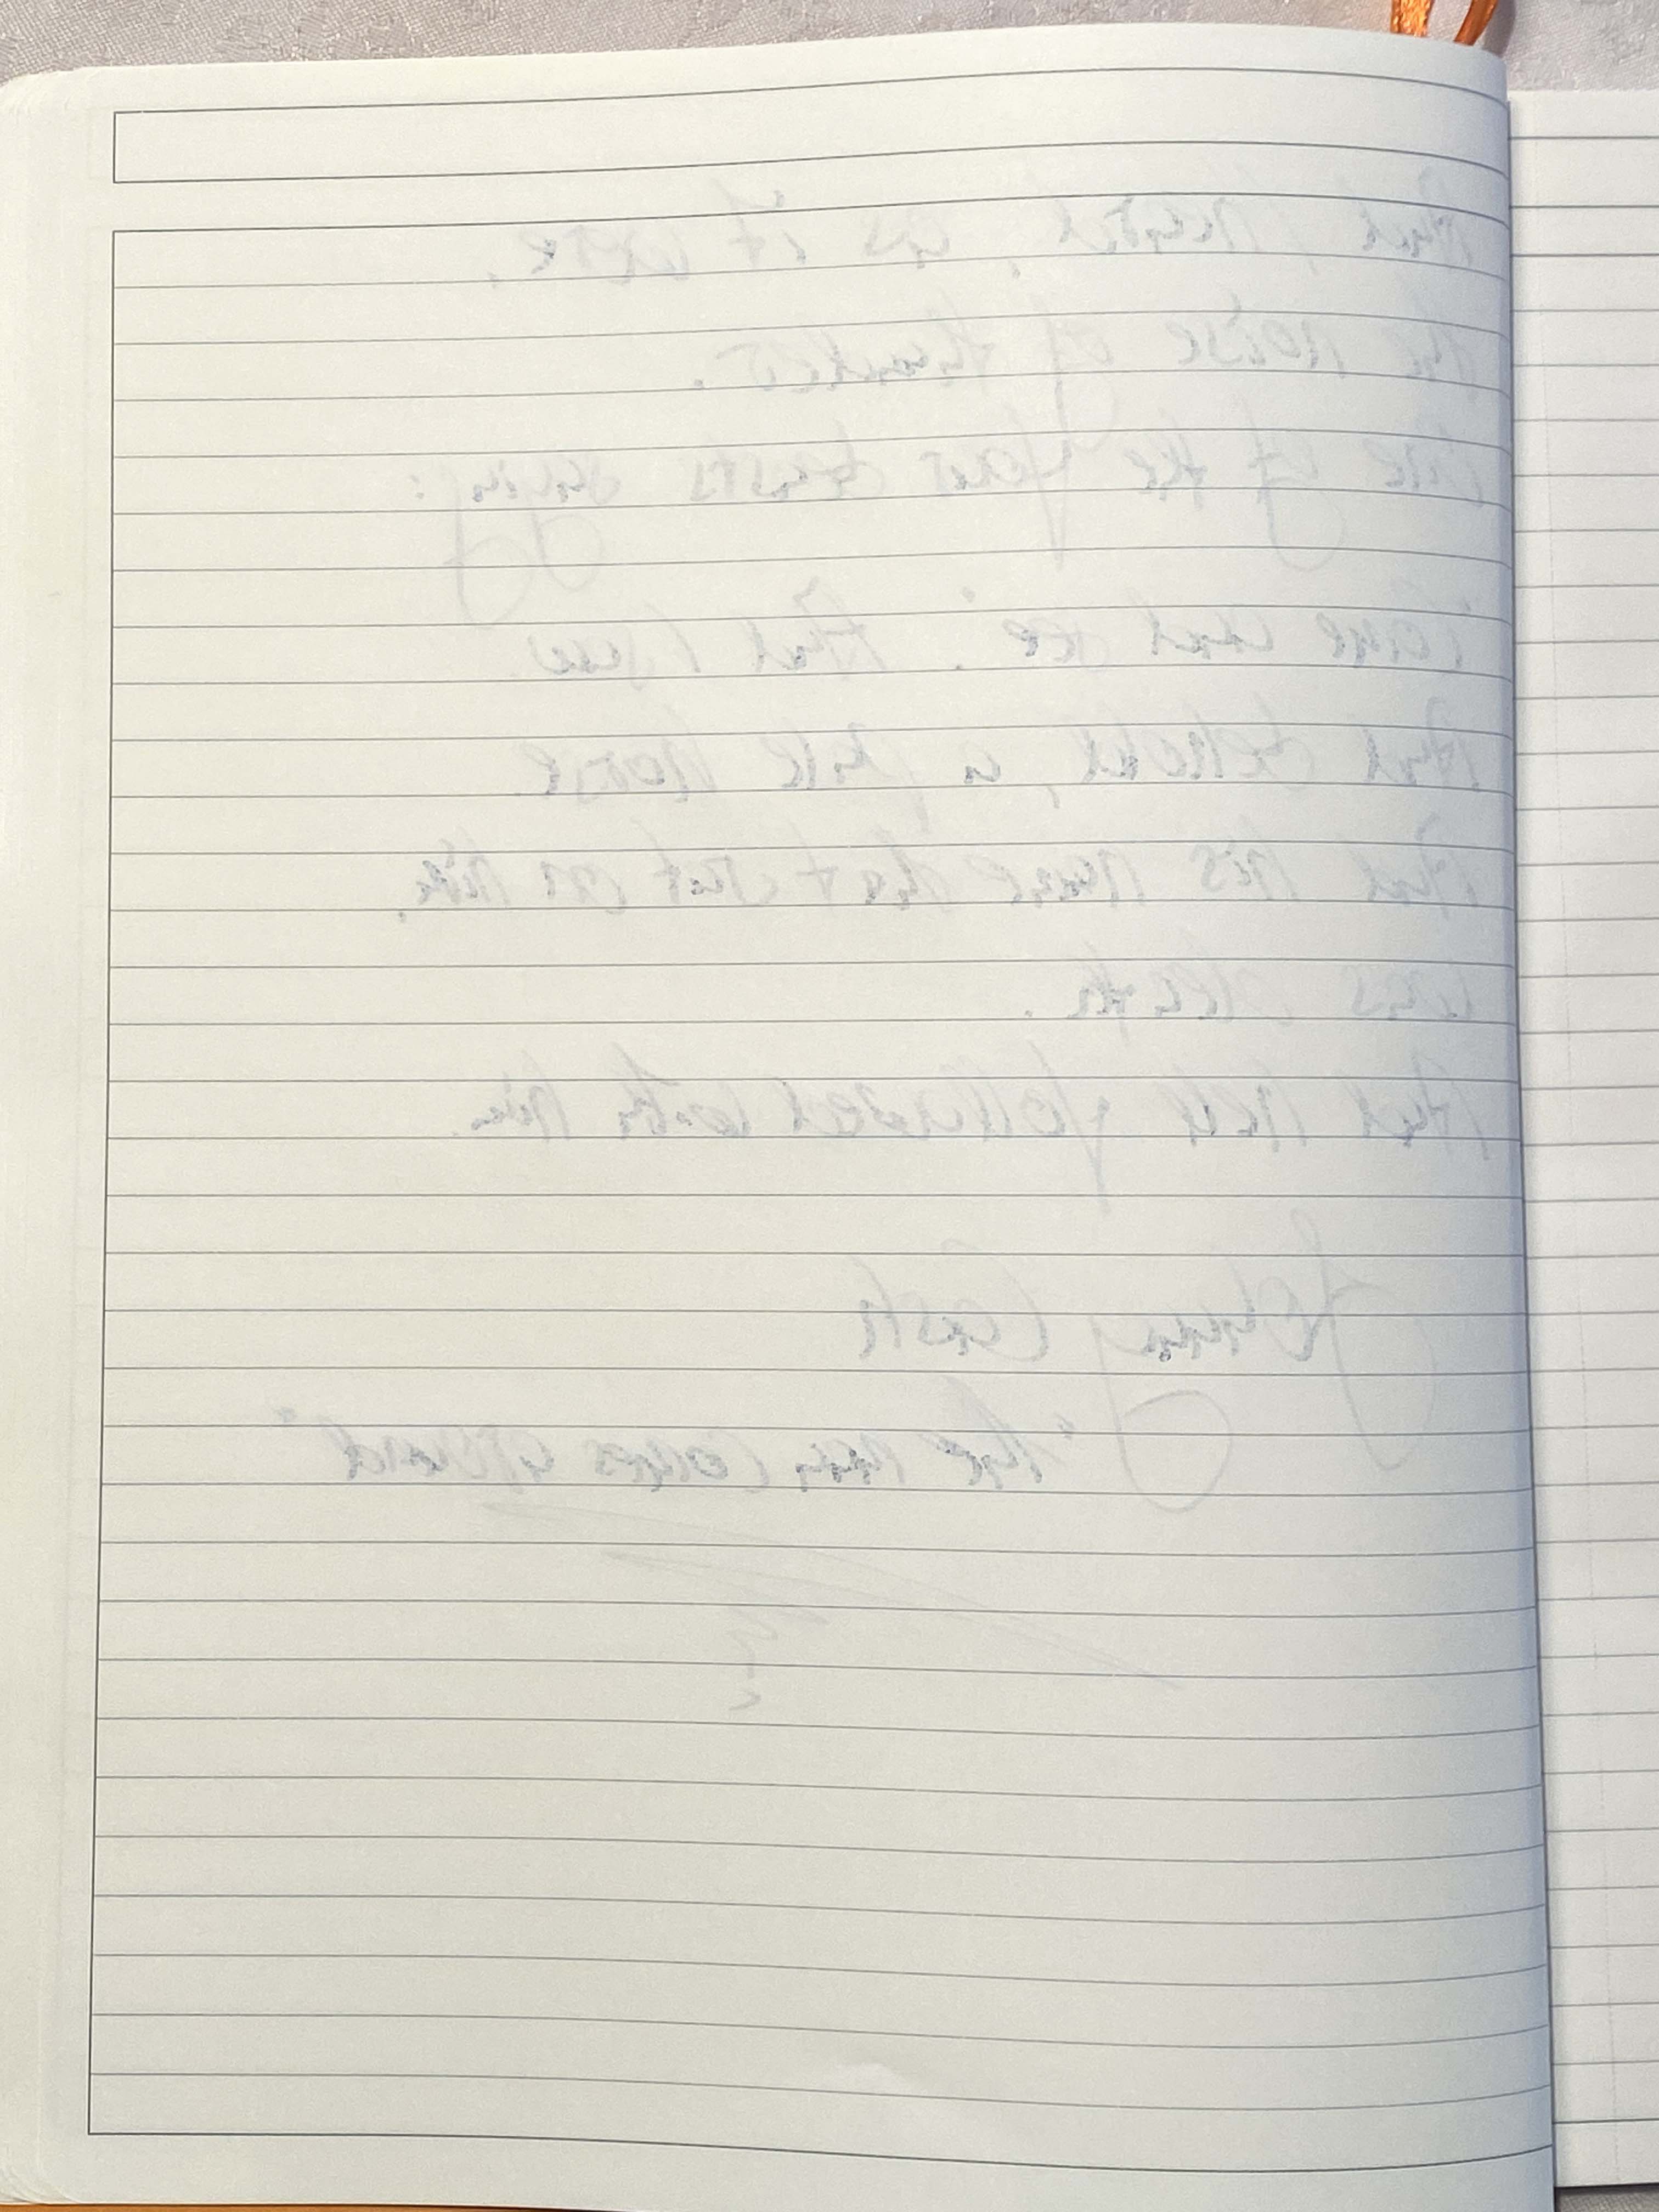 And, I heard, as it were,
the noise of thunder.
One of the four beasts saying:
"Come and see." And I saw.
And behold, a pale horse.
And his name that sat on him,
was death.
And hell followed with him.
Johnny Cash
"The man comes around"